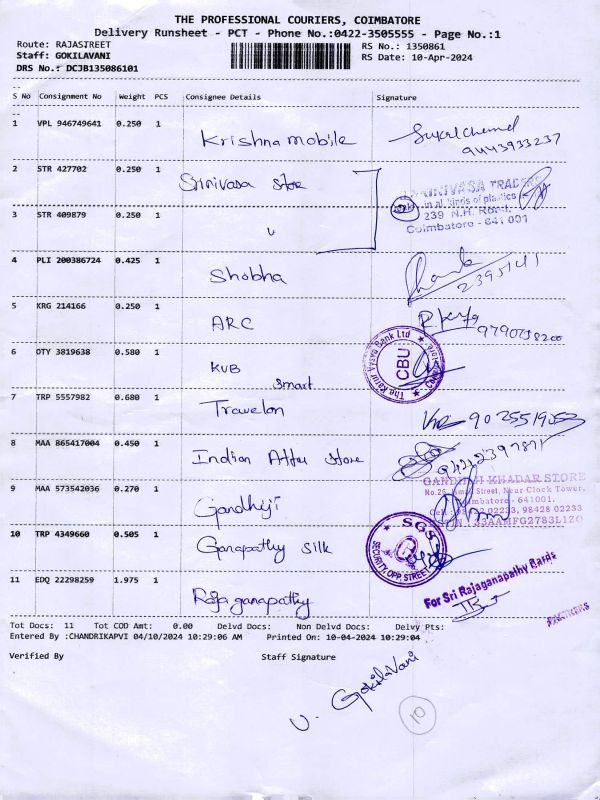 THE PROFESSIONAL COURIERS, COIMBATORE
Delivery Runsheet - PCT - Phone No.:0422-3505555 - Page No.:1
Route: RAJASTREET RS No.: 1350861
Staff: GOKILAVANI RS Date: 10-Apr-2024
DRS No.: DCJB135086101
S No Consignment No Weight PCS Consignee Details Signature
1 VPL 946749641 0.250 1 Krishna mobile
9443933237
2 STR 427702 0.250 1 Srinivasa Store
SRINIVASA TRADERS
in all kinds of plastics
239 N.H. Road,
Coimbatore - 641 001
3 STR 409879 0.250 1 "
4 PLI 200386724 0.425 1 Shobha
2395141
5 KRG 214166 0.250 1 ARC
6 OTY 3819638 0.580 1 KVB
The Karur Vysya Bank Ltd
CBU
Smart
7 TRP 5557982 0.680 1 Travelon
8 MAA 865417004 0.450 1 Indian Attur Store
GANDHIJI KHADAR STORE
Street, Near Clock Tower,
Coimbatore - 641001.
02233, 98428 02233
33AAMFG2783L1ZO
9 MAA 573542036 0.270 1 Gandhiji
10 TRP 4349660 0.505 1 Ganapathy Silk
SGS
SECURITY, OPP. STREET
11 EDQ 22298259 1.975 1 Raja ganapathy
For Sri Rajaganapathy Bards
PARTNERS
Tot Docs: 11 Tot COD Amt: 0.00 Delvd Docs: Non Delvd Docs: Delvy Pts:
Entered By :CHANDRIKAPVI 04/10/2024 10:29:06 AM Printed On: 10-04-2024 10:29:04
Verified By Staff Signature
U. GokilaVani
10